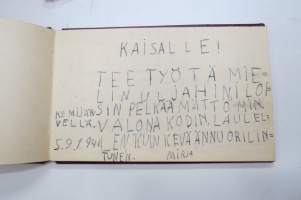 KAISALLE!
TEE TYÖTÄ MIE-
LIN ULJAHIN ILOI-
SIN PELKÄÄMÄTTÖMIN
VALONA KODIN, LAULEL-
LEN KUIN KEVÄÄN NUORI LIN-
TUNEN. MIRJA
KEMIJÄR-
VELLÄ.
5.9.1941